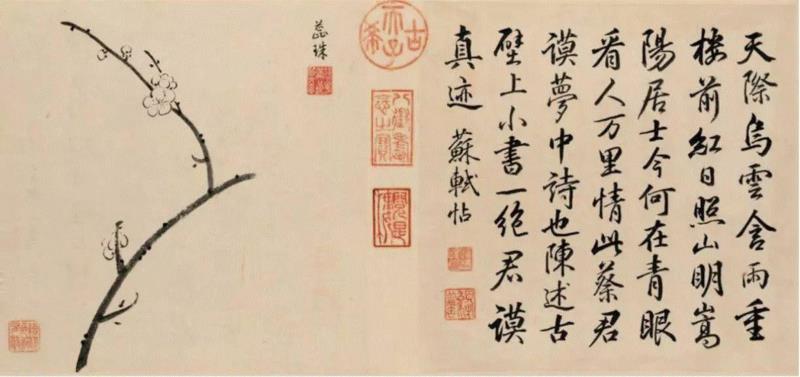 天際烏雲含雨重
樓前紅日照山明嵩
陽居士今何在青眼
看人万里情此蔡君
謨夢中詩也陳述古
壁上小書一絶君謨
真迹 蘇軾帖
古希天子
八徵耄念之寶
蕊珠